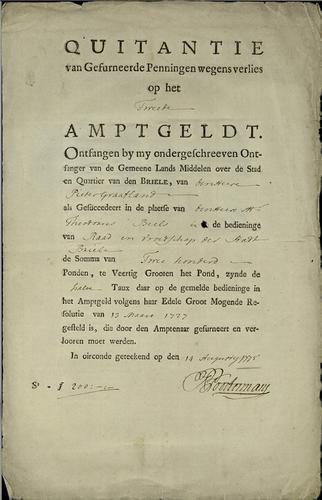 QUITANTIE
van Gefurneerde Penningen wegens verlies
op het
Tweede
AMPTGELDT.
Ontfangen by my ondergeschreeven Ont-
fanger van de Gemeene Lands Middelen over de Stad
en Quartier van den BRIELE, van den Heere
Pieter Graafland
als Gesuccedeert in de plaetse van den Heere Mr
Theodorus Biels in de bedieninge
van Raad en Vroedschap der Stadt
Briele
de Somma van Twee honderd
Ponden, te Veertig Grooten het Pond, zynde de
halve Taux daar op de gemelde bedieninge in
het Amptgeld volgens haar Edele Groot Mogende Re-
solutie van 15 Maart 1727
gesteld is, die door den Amptenaar gefurneert en ver-
looren moet werden.
In oirconde geteekend op den 14 Augusty 1775
f 200:-:-